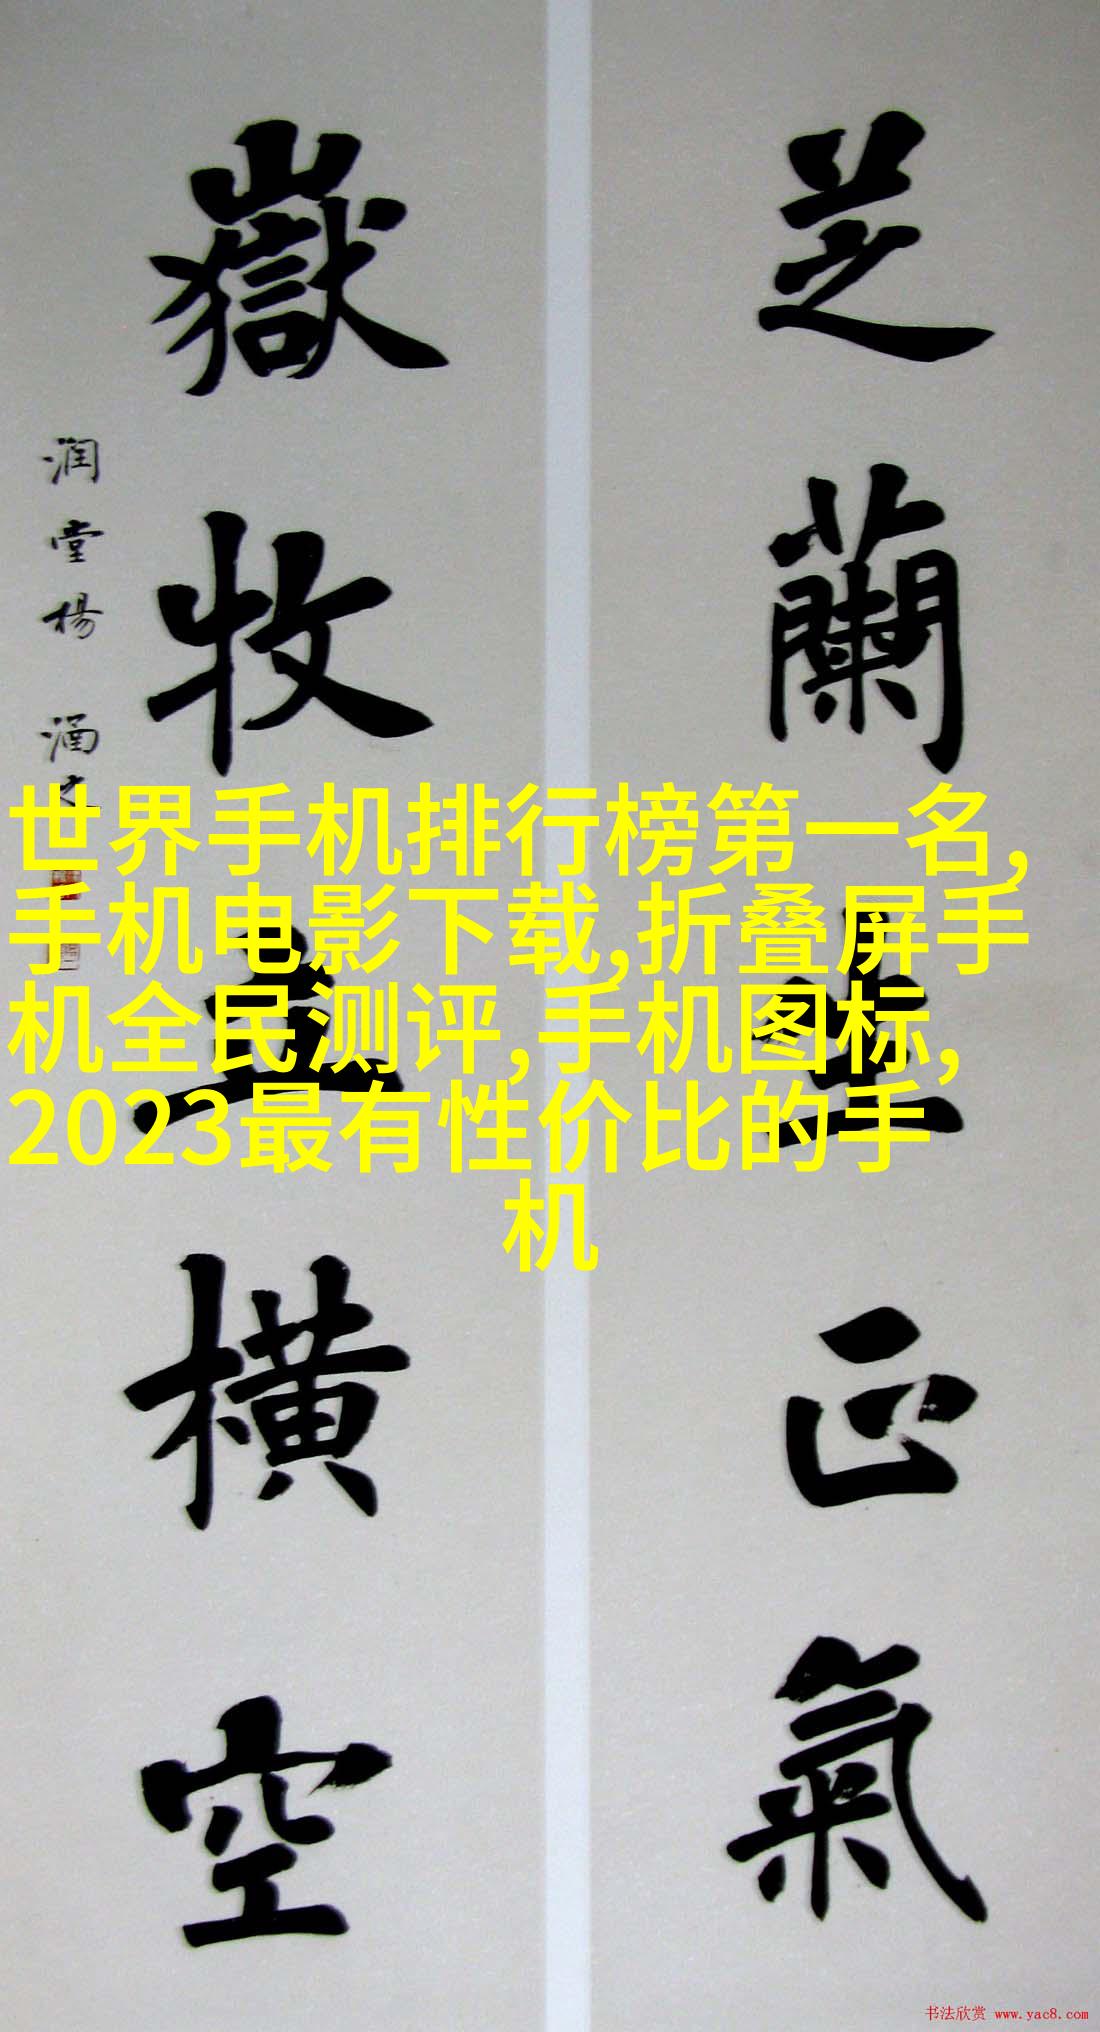 芝蘭生正氣
嶽牧立橫空
润堂楊涵之
世界手机排行榜第一名,
手机电影下载,折叠屏手
机全民测评,手机图标,
2023最有性价比的手
机
书法欣赏 www.yac8.com